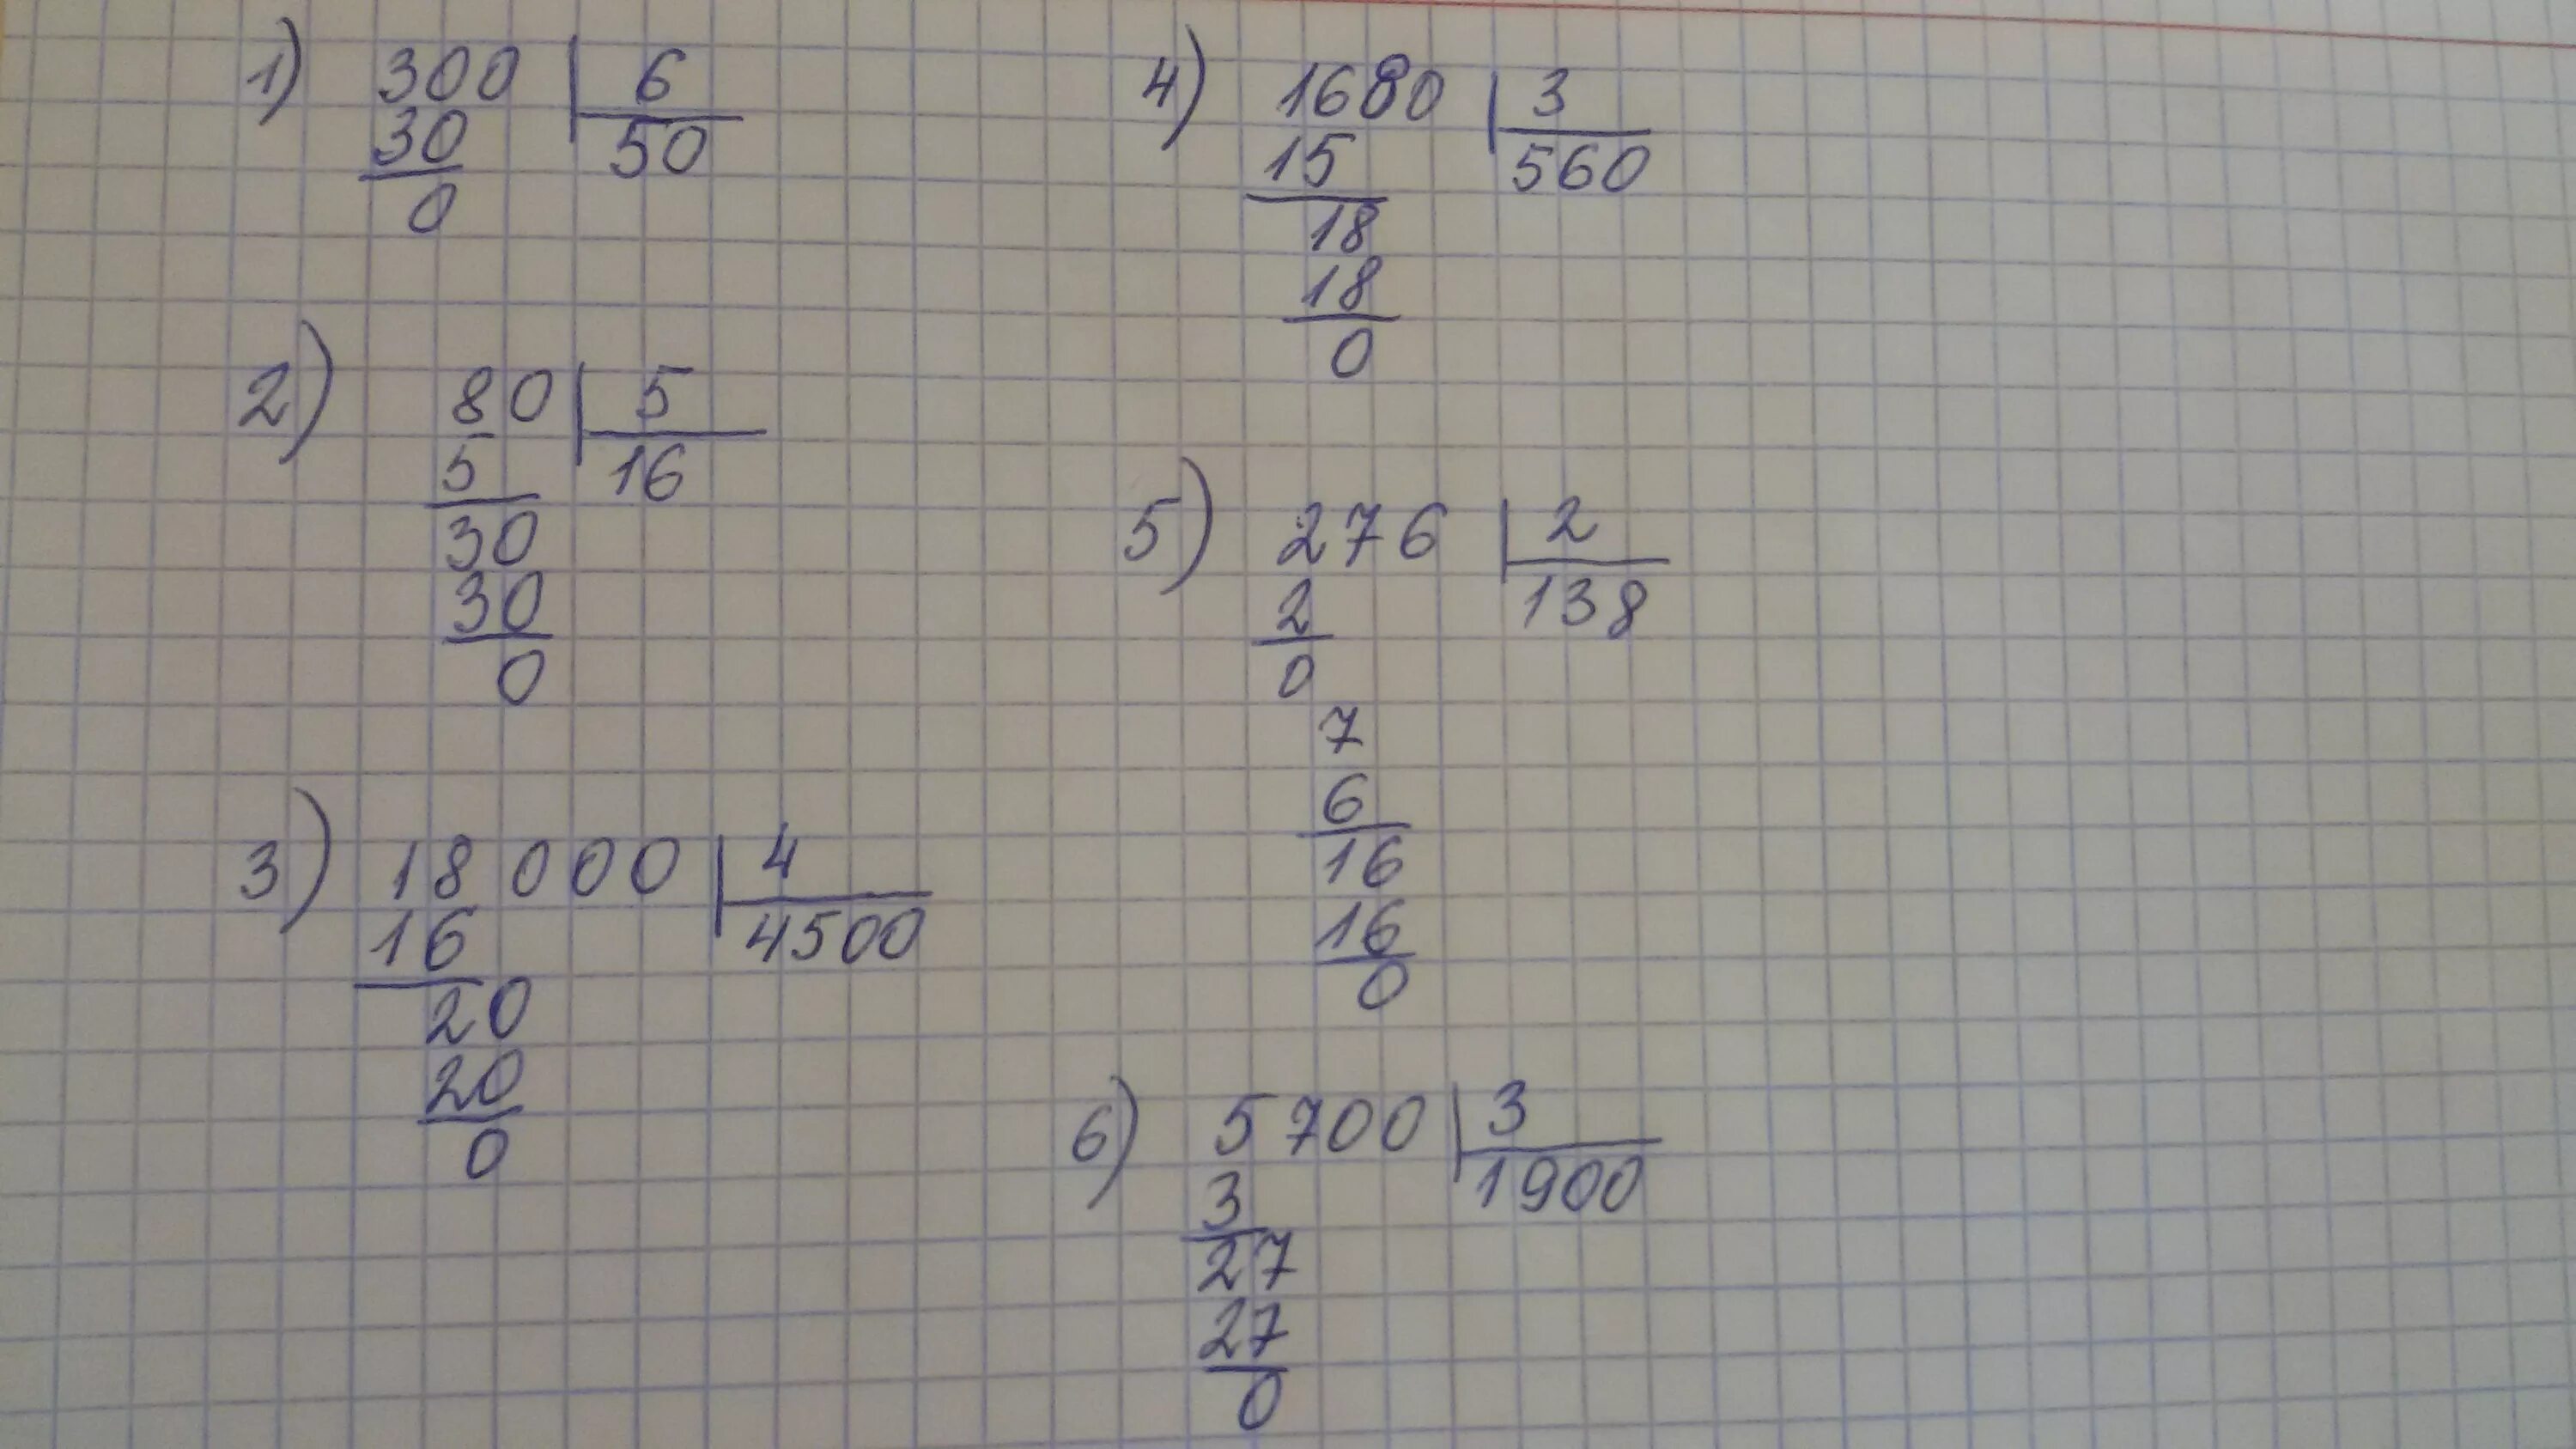 1) 300 | 6
30 | 50
0
2) 80 | 5
5 | 16
30
30
0
3) 18 000 | 4
16 | 4500
20
20
0
4) 1680 | 3
15 | 560
18
18
0
5) 276 | 2
2 | 138
0
7
6
16
16
0
6) 5700 | 3
3 | 1900
27
27
0